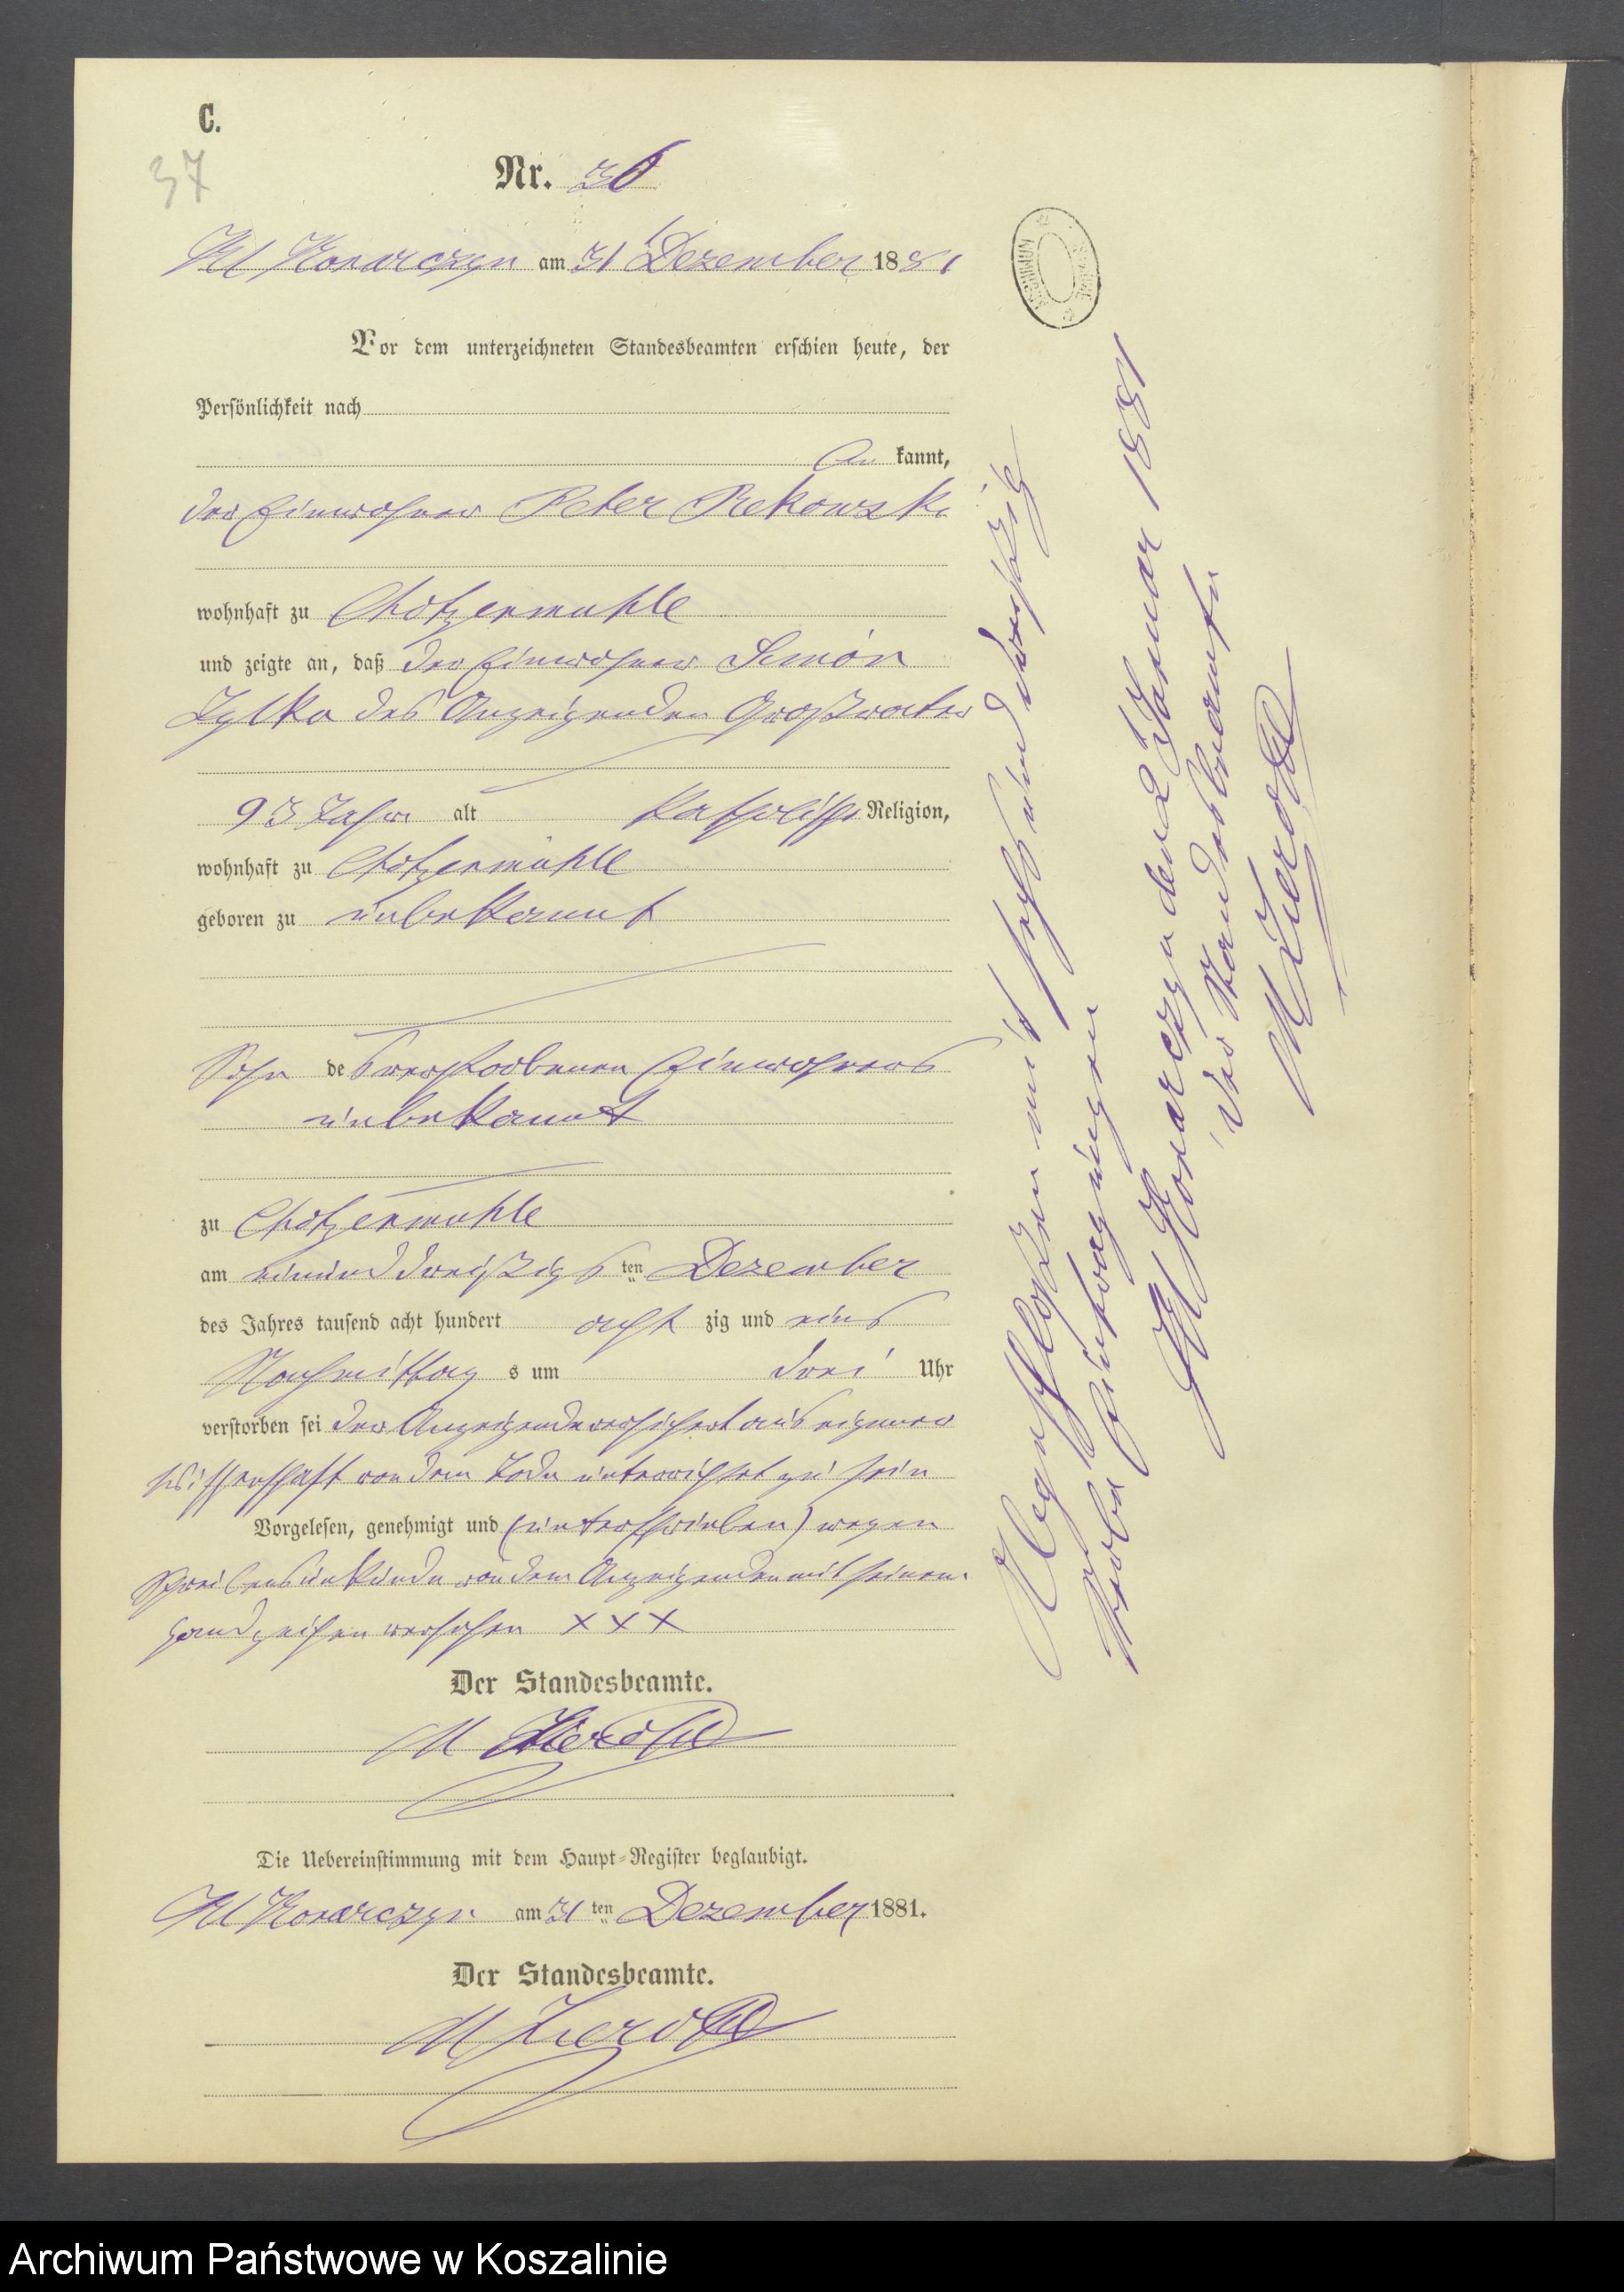 C.
37
Nr. 36
Kl Konarczyn am 31 Dezember 1881
Vor dem unterzeichneten Standesbeamten erschien heute, der
Persönlichkeit nach
be kannt,
der Einwohner Peter Rekowski
wohnhaft zu Chotzenmühle
und zeigte an, daß der Einwohner Simon
Zylka des Anzeigenden Großvater
93 Jahre alt katholischer Religion,
wohnhaft zu Chotzenmühle
geboren zu unbekannt
Sohn des verstorbenen Einwohners
unbekannt
zu Chotzenmühle
am einunddreißigsten Dezember
des Jahres tausend acht hundert acht zig und eins
Nachmittag s um drei Uhr
verstorben sei der Anzeigende versichert aus eigener
Wissenschaft von dem Tode unterrichtet zu sein
Vorgelesen, genehmigt und (unterschrieben) wegen
Schreibensunkunde von dem Anzeigenden mit seinem
Handzeichen versehen XXX
Der Standesbeamte.
M
Die Uebereinstimmung mit dem Haupt-Register beglaubigt.
Kl Konarczyn am 31 ten Dezember 1881.
Der Standesbeamte.
M
Abgeschloßen mit sechs und dreißzig
Eintragungen
Kl Konarczyn den 2 Januar 1881
der Standesbeamte
M
Archiwum Państwowe w Koszalinie